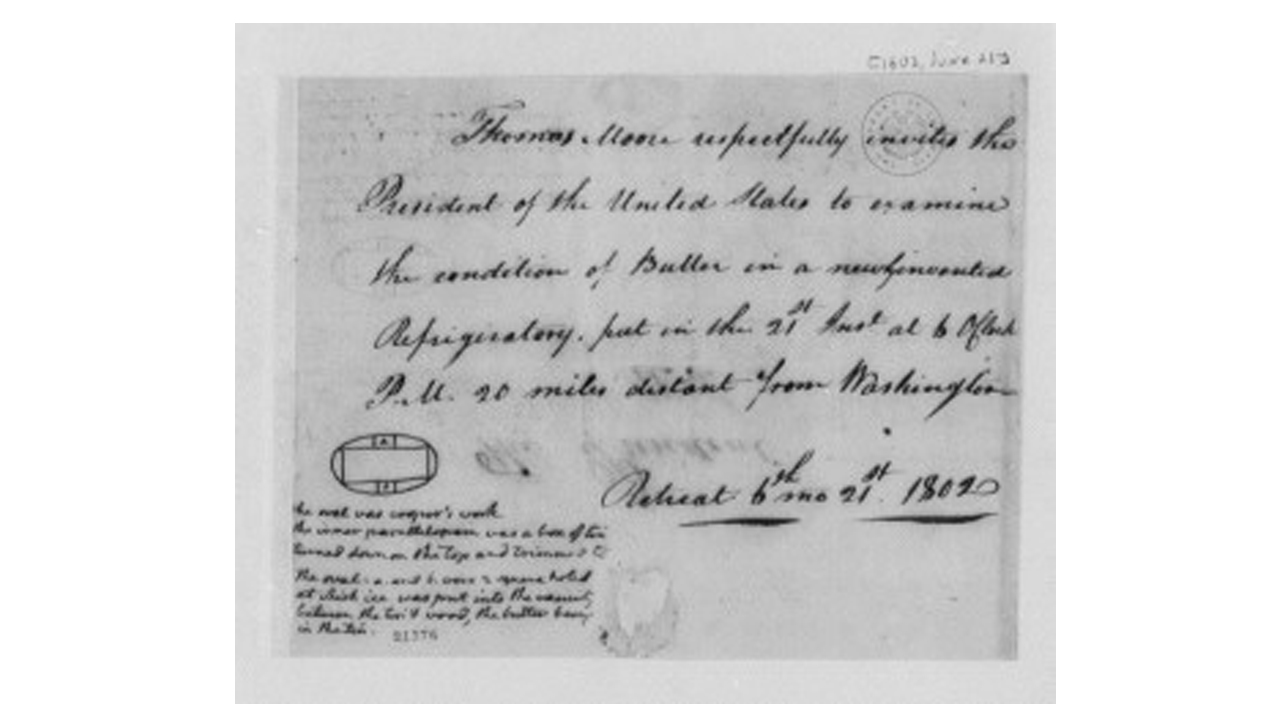 [1802, June 21]
Thomas Moore respectfully invites the
President of the United States to examine
the condition of Butter in a newly invented
Refrigeratory. put in the 21st Inst at 6 OClock
P.M. 20 miles distant from Washington
Retreat 6th mo 21st. 1802
A
the oval was cooper's work
the inner parallelogram was a box of tin
turned down on the top and trimmed
the oval. a. and b. were 2 square holes
at which ice was put into the vacuity
between the tin & wood, the butter being
in the tin.
21376